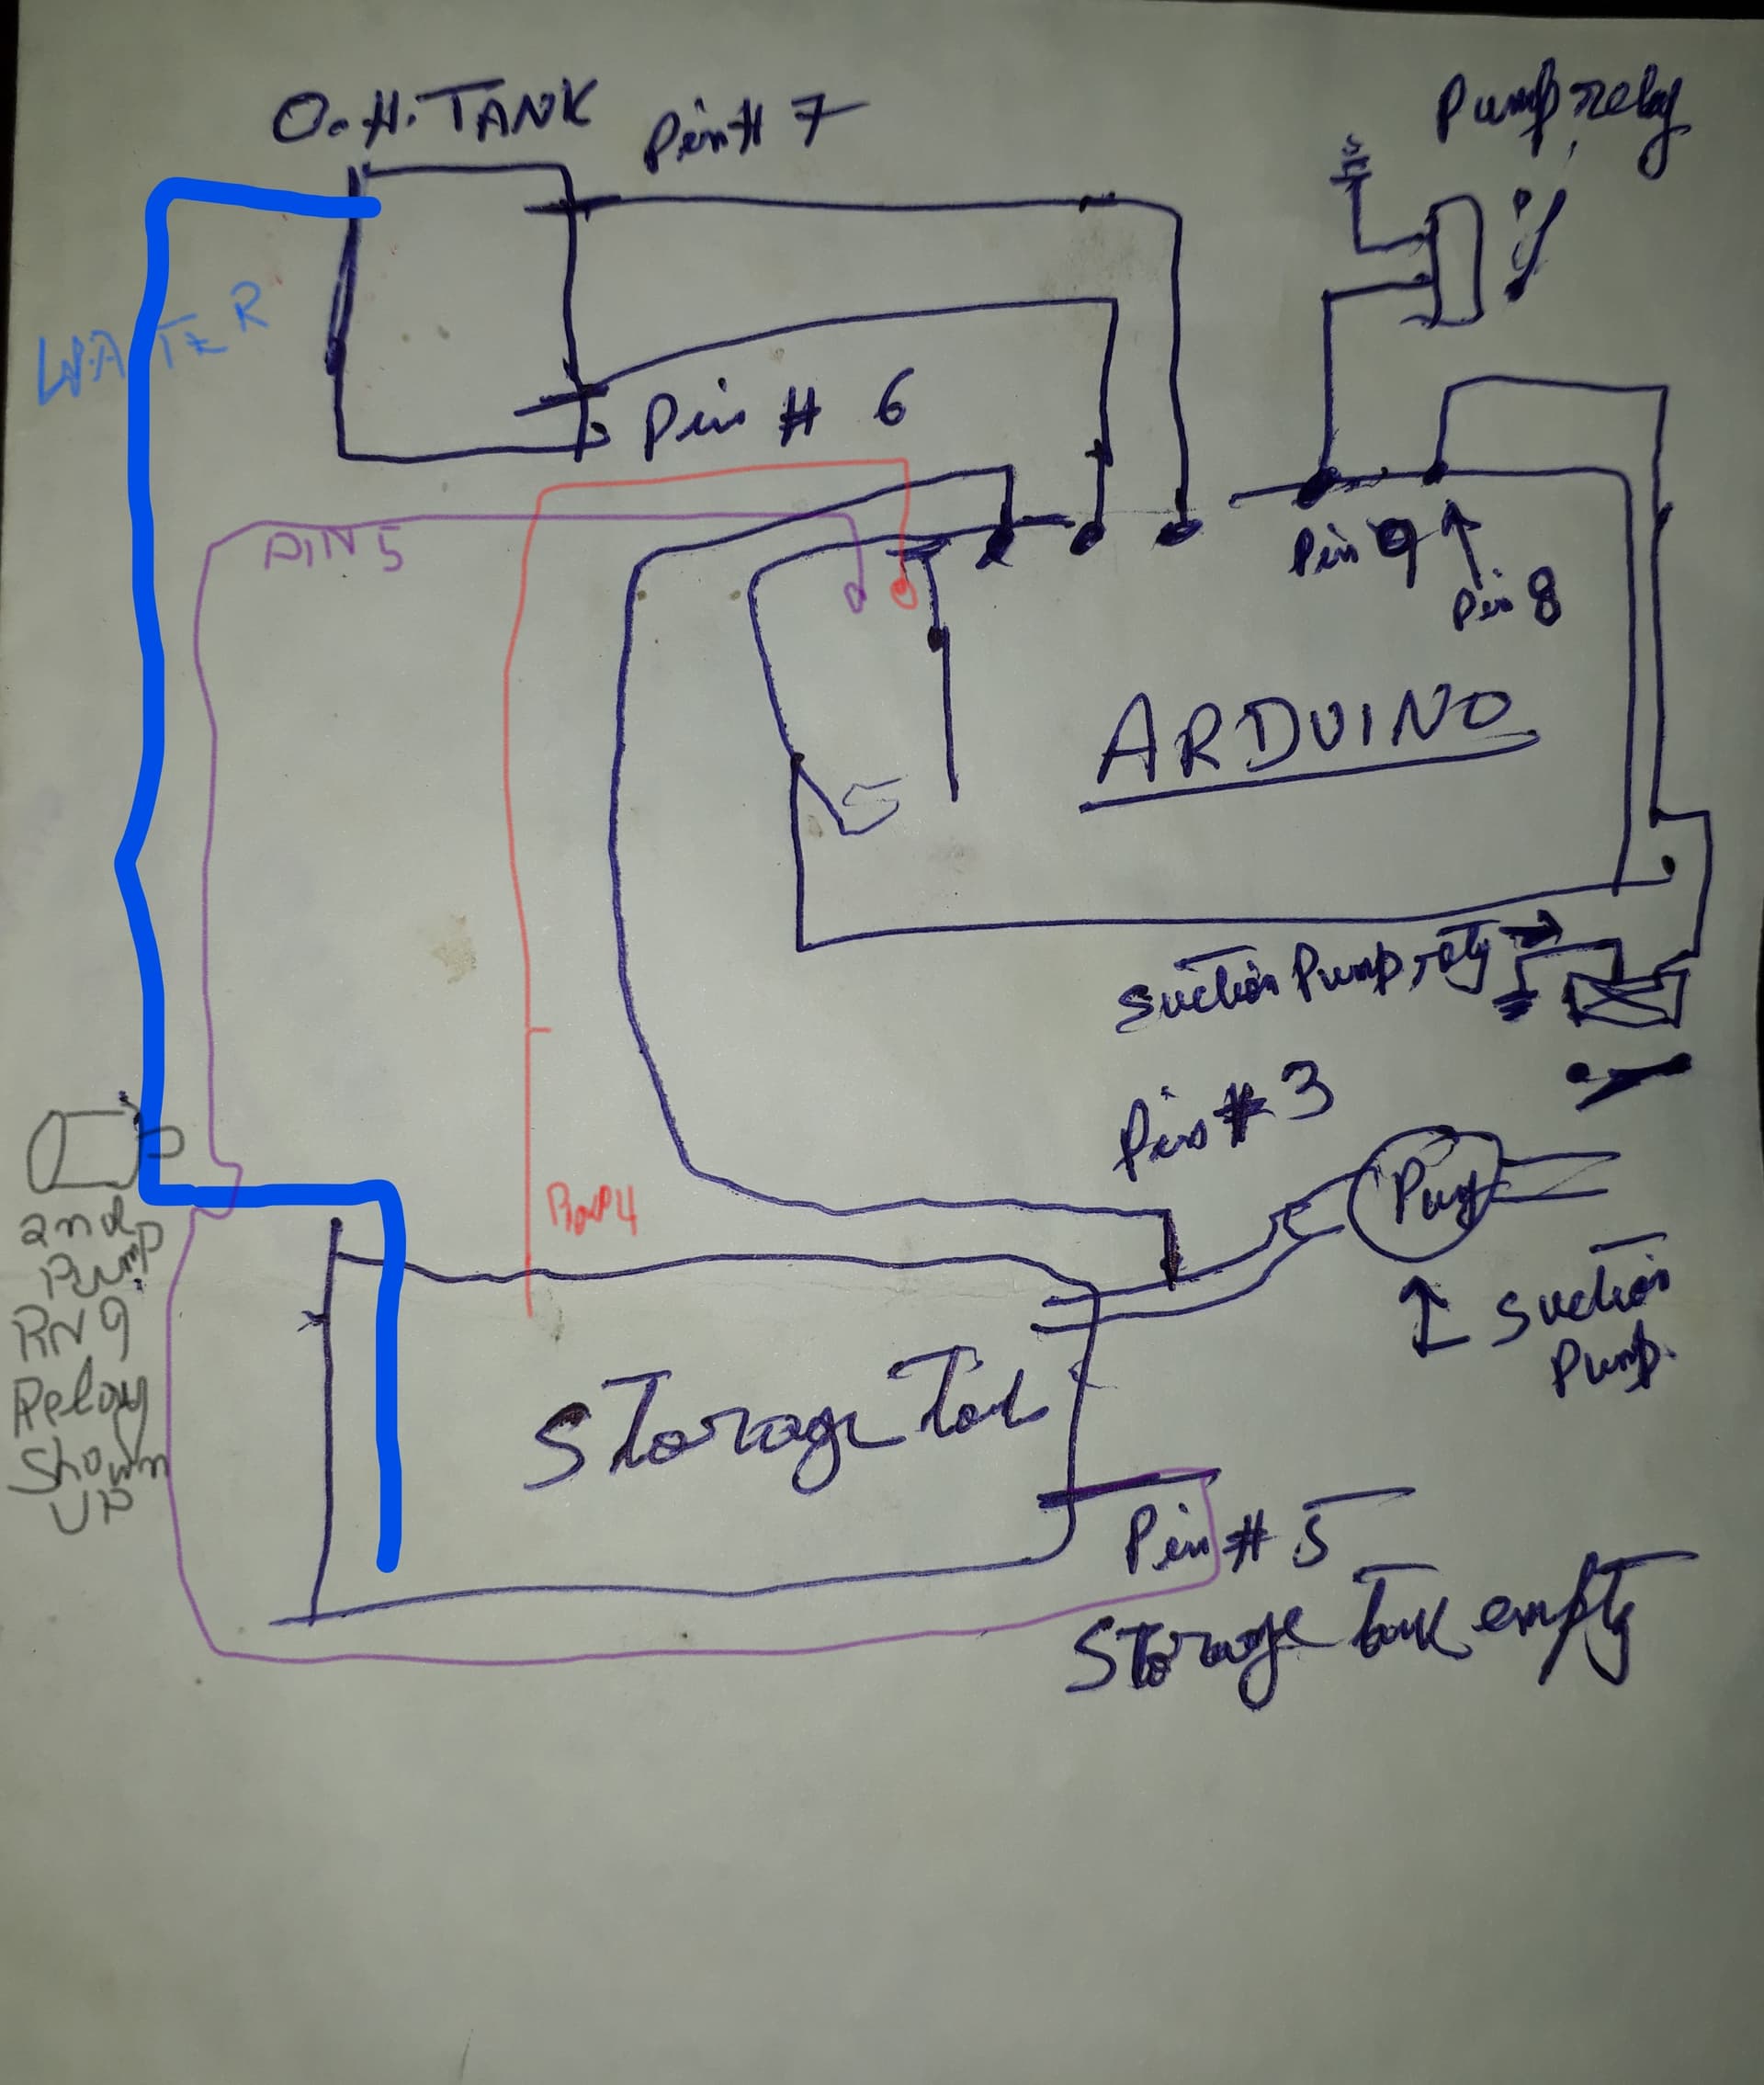 O.H.TANK
Pin # 7
Pump rely
WATER
Pin # 6
PIN 5
Pin 9
Pin 8
ARDUINO
Suction Pump rely
Pin # 3
Pump
2nd
Pump
PIN 9
Relay
Shown
UP
Suction
Pump.
Storage Tank
Pin # 5
Storage Tank empty